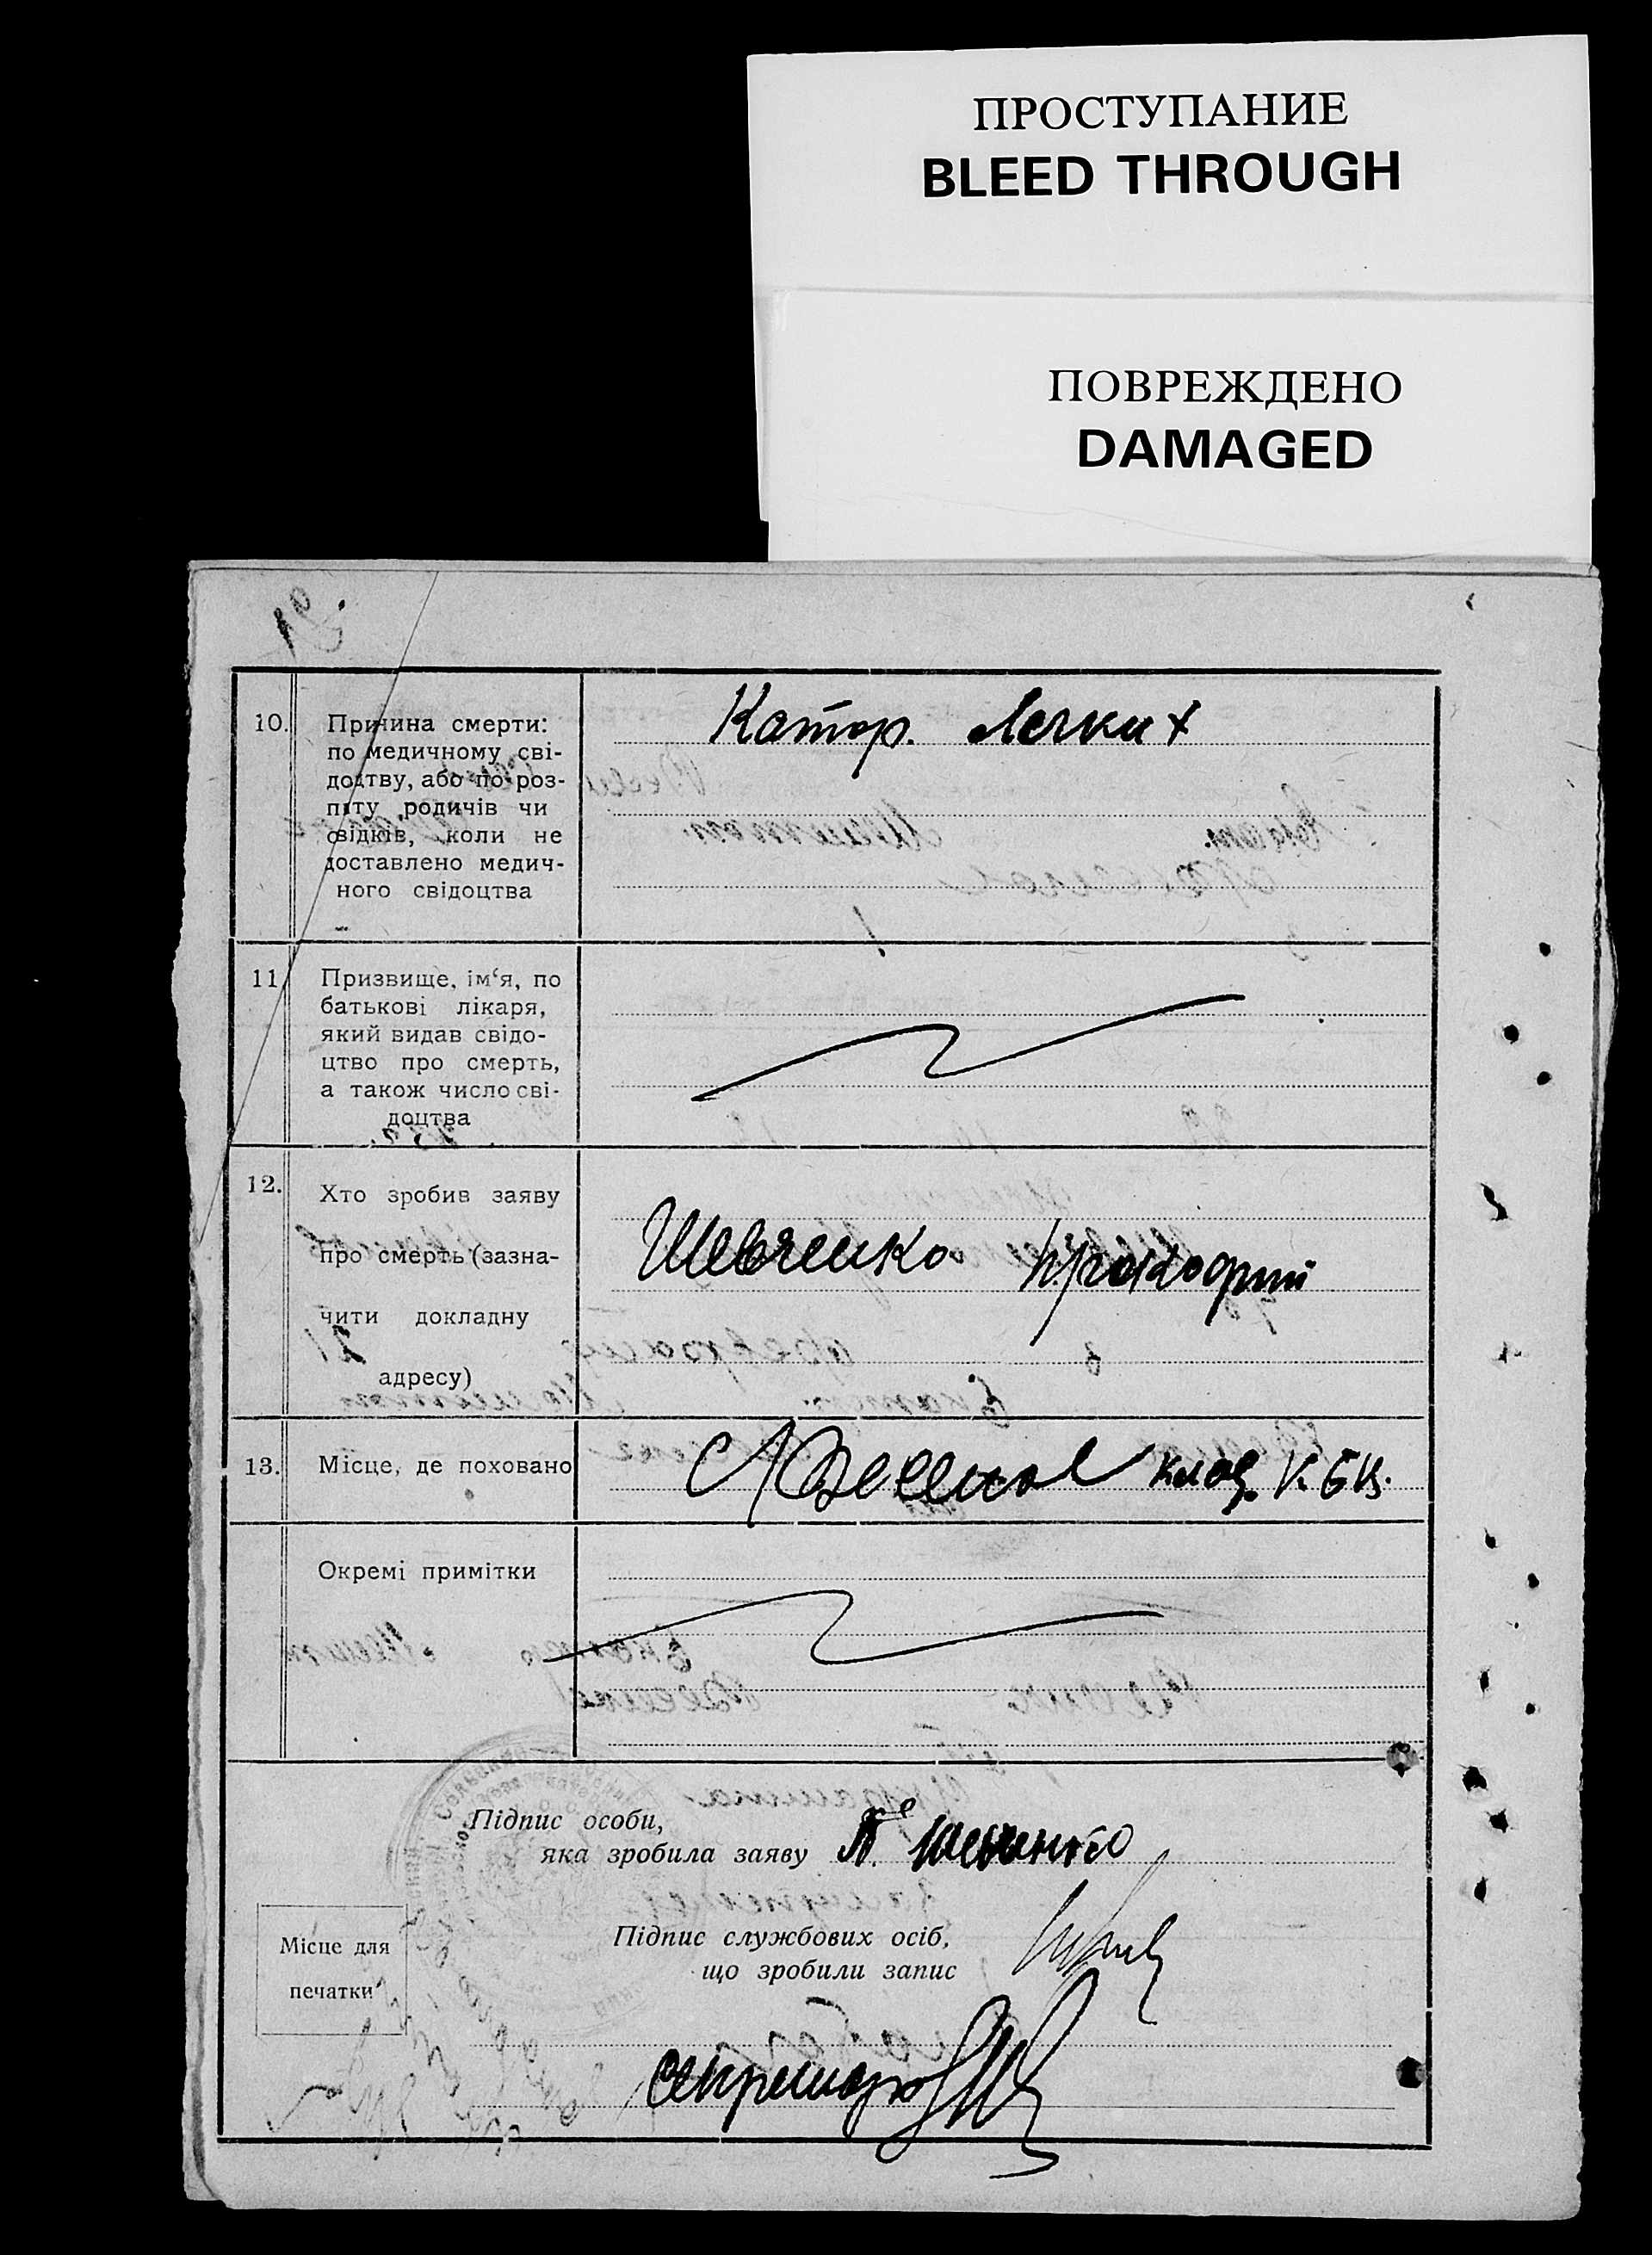 ПРОСТУПАНИЕ
BLEED THROUGH
ПОВРЕЖДЕНО
DAMAGED
10. Причина смерти:
по медичному сві-
доцтву, або по роз-
питу родичів чи
свідків, коли не
доставлено медич-
ного свідоцтва
Катар. Легких
11. Призвище, ім‘я, по
батькові лікаря,
який видав свідо-
цтво про смерть,
а також число сві-
доцтва
12. Хто зробив заяву
про смерть (зазна-
чити докладну
адресу)
Шевченко Прокофий
13. Місце, де поховано
клад.
Окремі примітки
Підпис особи,
яка зробила заяву
П. Шевченко
Підпис службових осіб,
що зробили запис
Місце для
печатки
секретарь